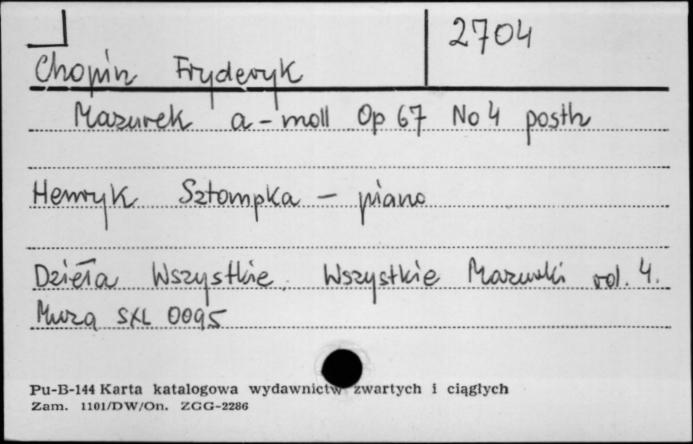 2704
Chopin Fryderyk
Mazurek a-moll Op 67 No 4 posth
Henryk Sztompka - piano
Dzieła Wszystkie. Wszystkie Mazurki vol. 4.
Muza SXL 0095
Pu-B-144 Karta katalogowa wydawnictw zwartych i ciągłych
Zam. 1101/DW/On. ZGG-2286